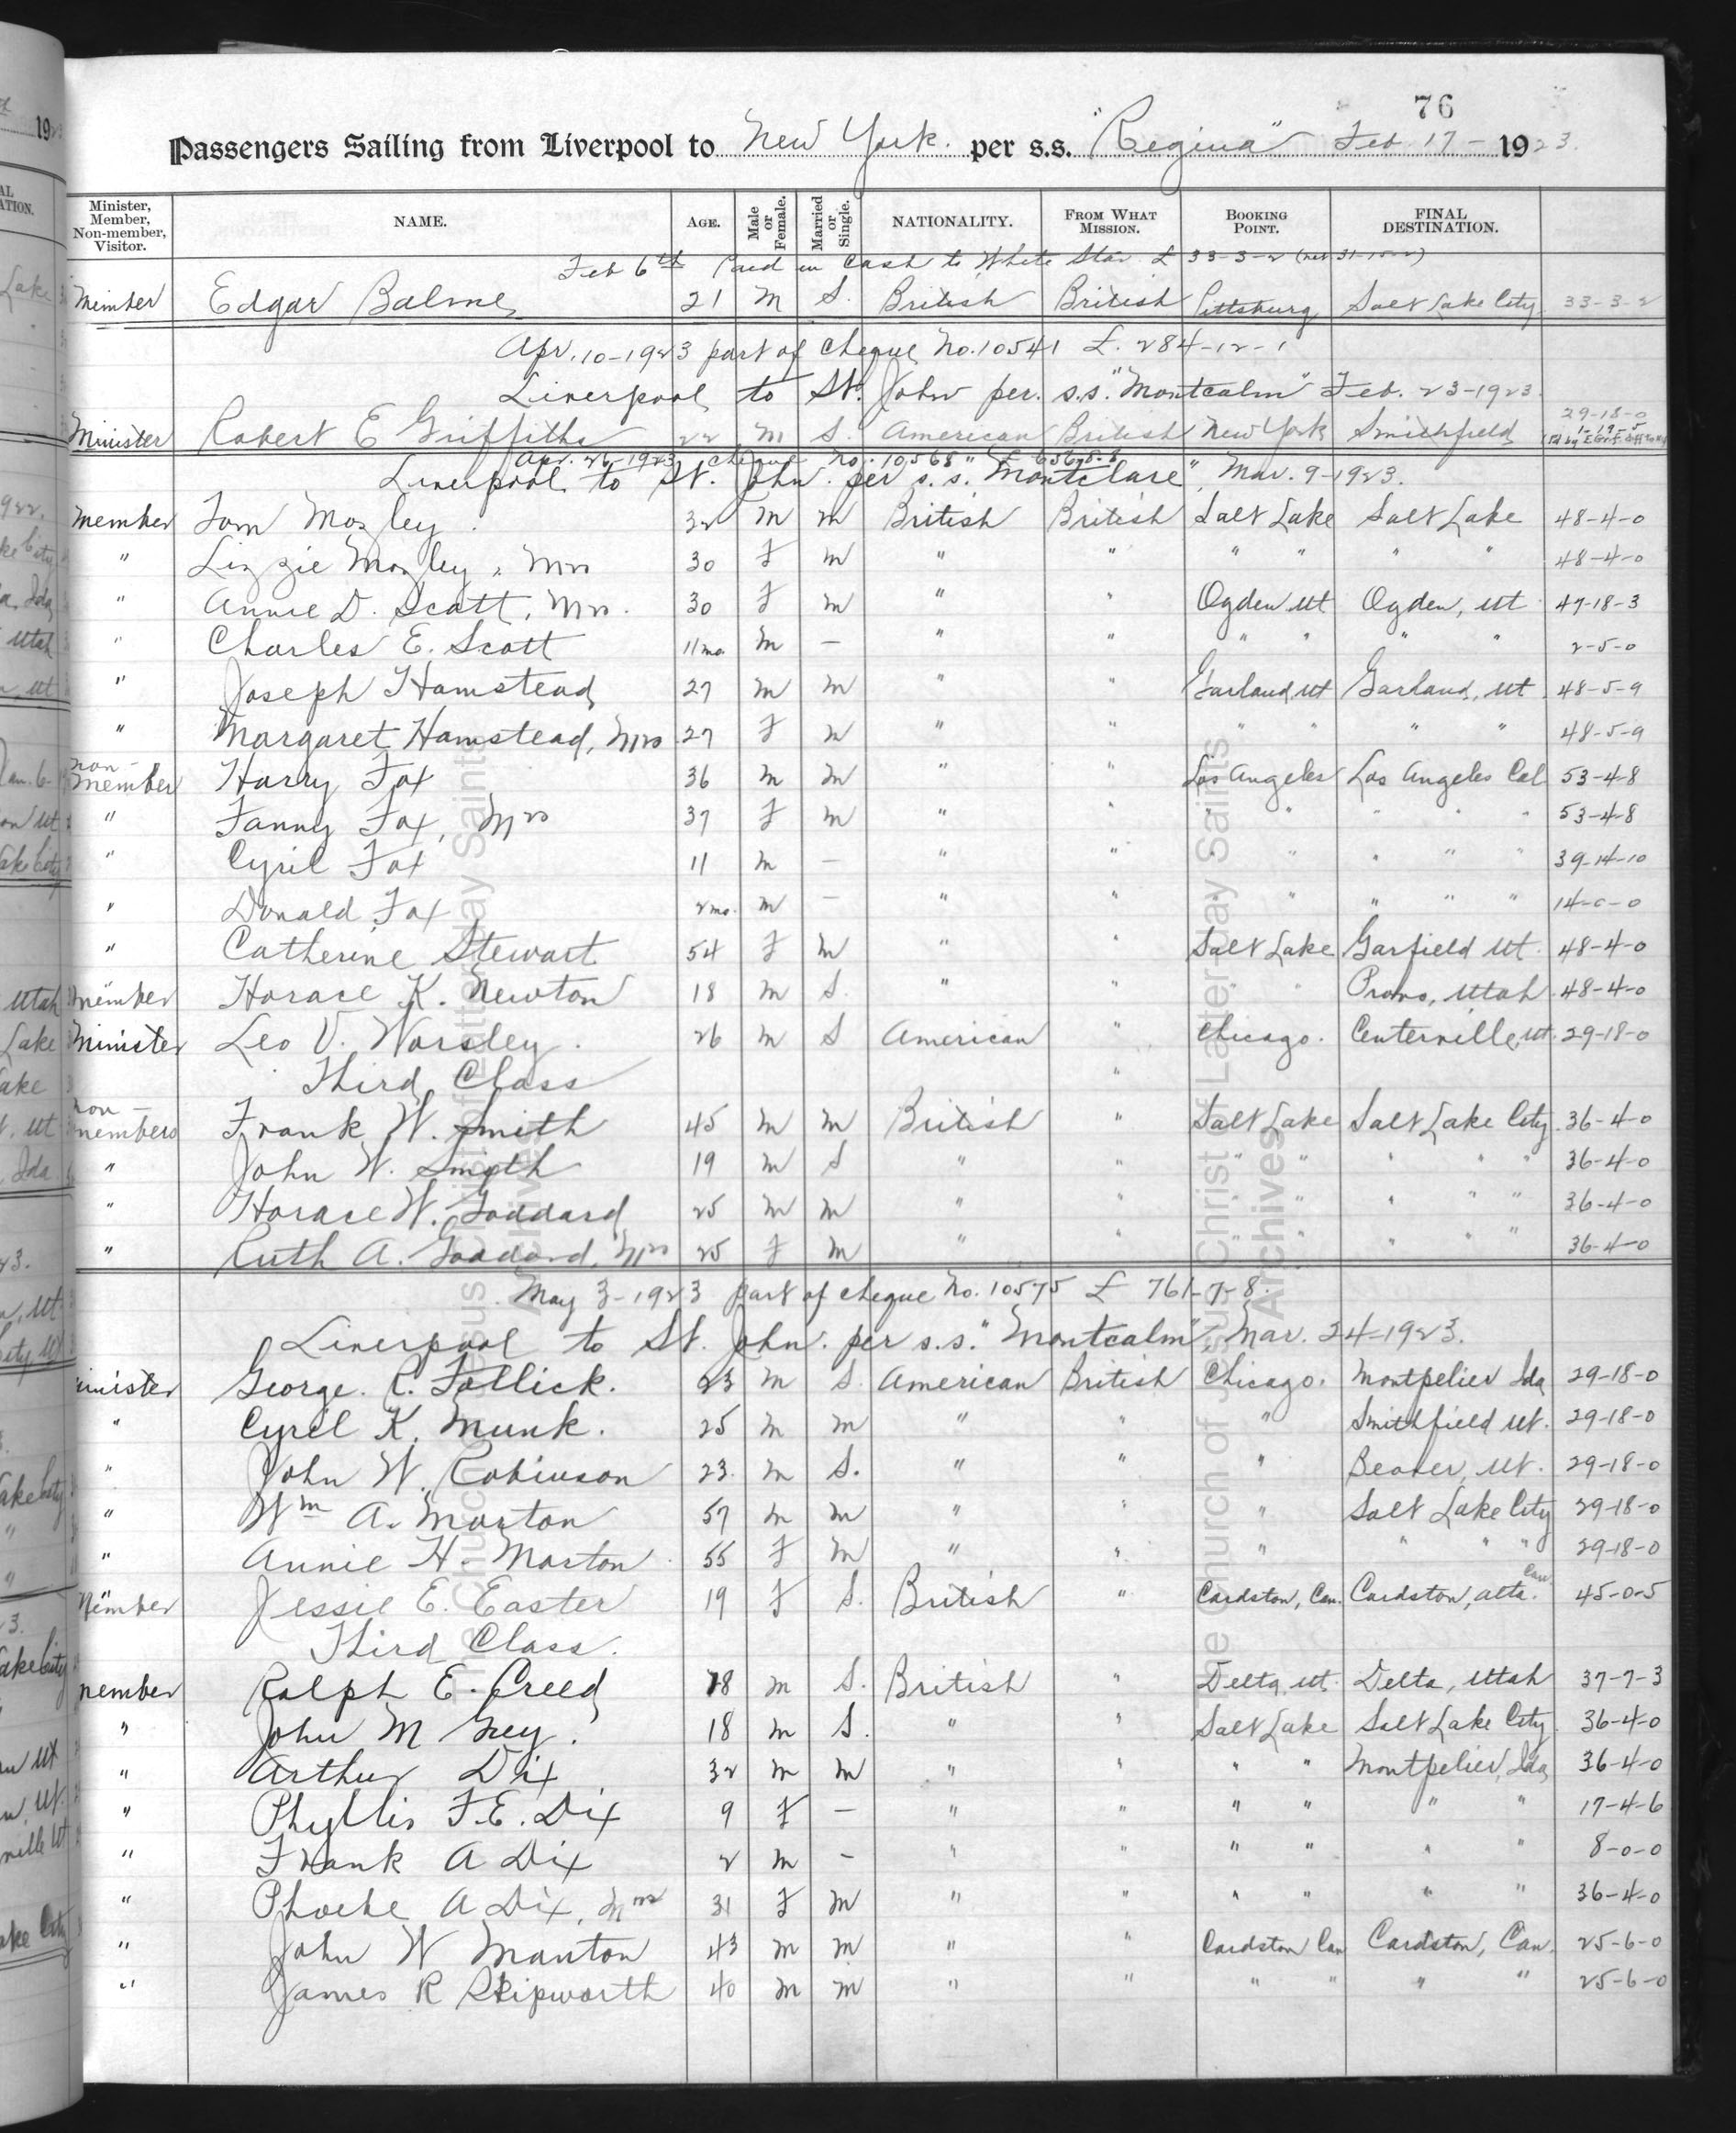 76
Passengers Sailing from Liverpool to New York. per s.s. "Regina" Feb. 17 - 1923.
Minister, Member, Non-member, Visitor. NAME. AGE. Male or Female. Married or Single. NATIONALITY. FROM WHAT MISSION. BOOKING POINT. FINAL DESTINATION.
Feb 6th Paid in Cash to White Star £ 33-3-2 (net 31-15-2)
Member Edgar Balme 21 M S. British British Pittsburg Salt Lake City 33-3-2
Apr. 10-1923 part of Cheque No. 10541 £. 284-12-1
Liverpool to St. John per. s.s. "Montcalm" Feb. 23-1923.
29-18-0
Minister Robert E Griffiths 22 M S. American British New York Smithfield 1-19-5
Apr. 26-1923 Cheque No. 10568 £ 656-8-8
Liverpool to St. John. per s.s. "Montclare", Mar. 9-1923.
Member Tom Mozley. 32 M M British British Salt Lake Salt Lake 48-4-0
" Lizzie Mozley, Mrs 30 F M " " " " " " 48-4-0
" Annie D. Scott, Mrs. 30 F M " " Ogden Ut Ogden, Ut 47-18-3
" Charles E. Scott 11 mo. M — " " " " " " 2-5-0
" Joseph Hamstead 27 M M " " Garland, Ut Garland, Ut 48-5-9
" Margaret Hamstead, Mrs 27 F M " " " " " " 48-5-9
non-member Harry Fox 36 M M " " Los Angeles Los Angeles Cal 53-4-8
" Fanny Fox, Mrs 37 F M " " " " " " 53-4-8
" Cyril Fox 11 M — " " " " " " 39-14-10
" Donald Fox 2 mo. M — " " " " " " 14-0-0
" Catherine Stewart 54 F M " " Salt Lake Garfield Ut. 48-4-0
Member Horace K. Newton 18 M S. " " " " Provo, Utah 48-4-0
Minister Leo V. Worsley. 26 M S American " Chicago. Centerville, Ut. 29-18-0
Third Class "
non-members Frank W. Smith 45 M M British " Salt Lake Salt Lake City. 36-4-0
" John W. Smith 19 M S " " " " " " " 36-4-0
" Horace W. Goddard 25 M M " " " " " " " 36-4-0
" Ruth A. Goddard, Mrs 25 F M " " " " " 36-4-0
May 3-1923 part of cheque No. 10575 £ 761-7-8.
Liverpool to St. John. per s.s. "Montcalm", Mar. 24-1923.
Minister George. R. Follick. 23 M S. American British Chicago. Montpelier Ida 29-18-0
" Cyril K. Munk. 25 M M " " " Smithfield Ut. 29-18-0
" John W. Robinson 23. M S. " " " Beaver, Ut. 29-18-0
" Wm A. Morton 57 M M " " " Salt Lake City 29-18-0
" Annie H. Morton 55 F M " " " " " " 29-18-0
Member Jessie E. Easter 19 F S. British " Cardston, Can. Cardston, Alta. Can 45-0-5
Third Class.
Member Ralph E. Creed 18 M S. British " Delta, Ut. Delta, Utah 37-7-3
" John M Grey. 18 M S. " " Salt Lake Salt Lake City. 36-4-0
" Arthur Dix 32 M M " " " " Montpelier, Ida 36-4-0
" Phyllis F. E. Dix 9 F — " " " " " " 17-4-6
" Frank A Dix 2 M — " " " " " " 8-0-0
" Phoebe A Dix, Mrs 31 F M " " " " " " 36-4-0
" John W Manton 43 M M " " Cardston Can Cardston, Can. 25-6-0
" James R Skipworth 40 M M " " " " " " 25-6-0
The Church of Jesus Christ of Latter-day Saints
Archives
The Church of Jesus Christ of Latter-day Saints
Archives